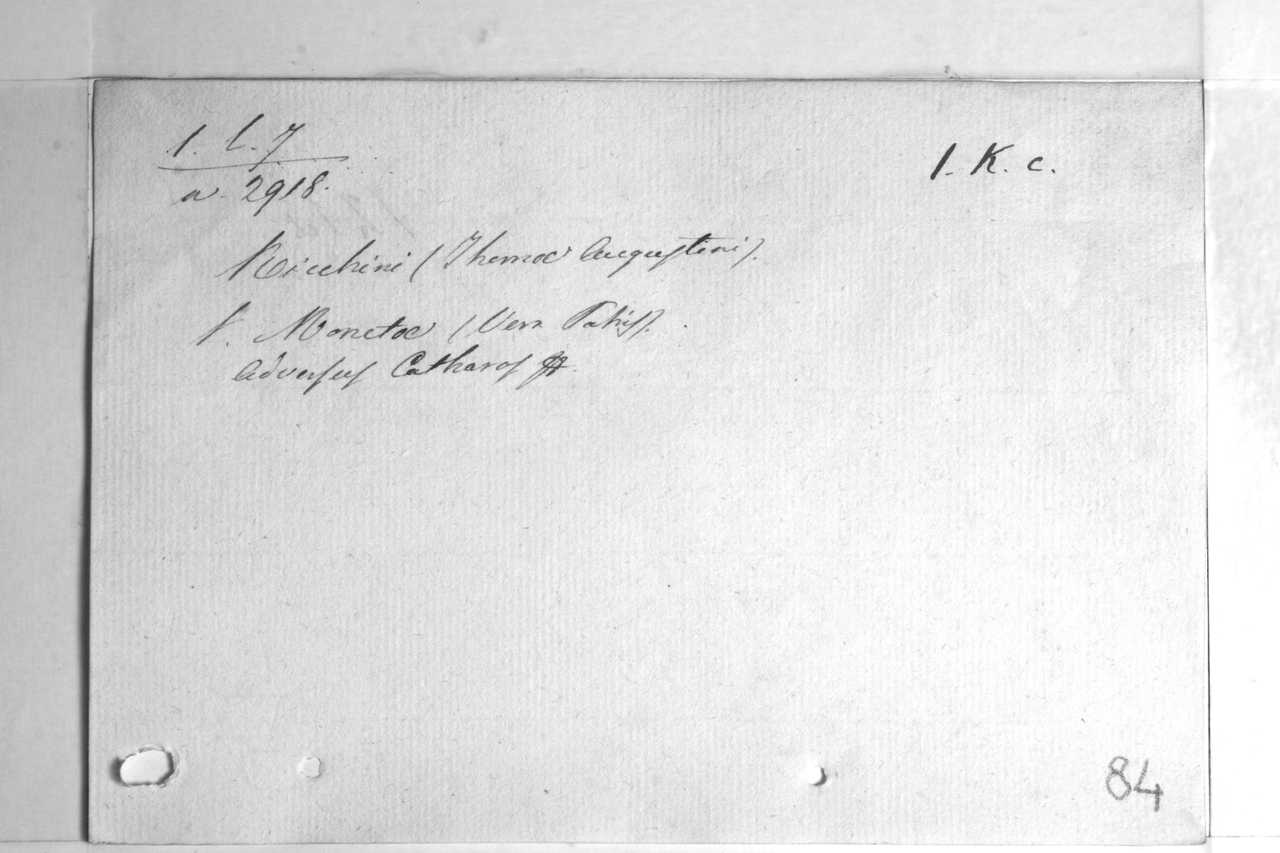 1. l. 7
a. 2918.
1. K. c.
Ricchini (Thomae Augustini).
V. Monetae (Ven. Patris).
Adversus Catharos
84